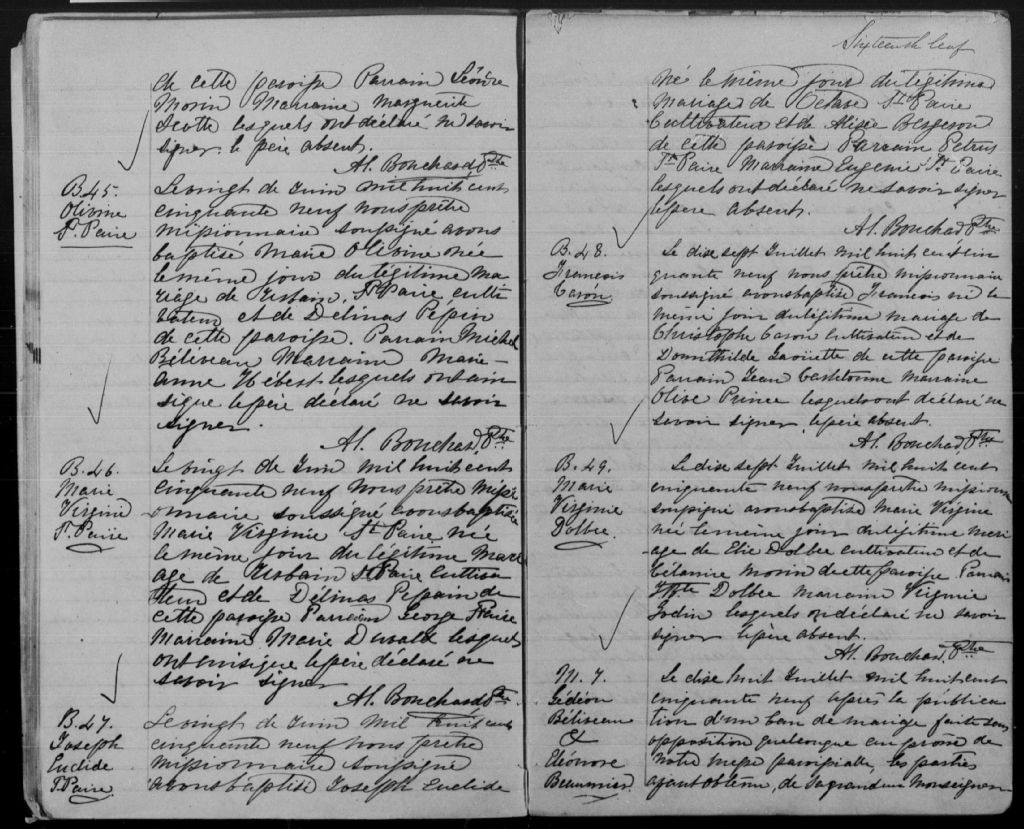 de cette paroisse Parrain Léonre
Morin Marraine Marguerite
Scotte lesquels ont déclaré ne savoir
signer. le père absent.
Al. Bouchard Ptre
B. 45.
Olivine
St. Paire
Le vingt de Juin mil huit cent
cinquante neuf nous prêtre
missionnaire soussigné avons
baptisé Marie Olivine née
le même jour du légitime ma
riage de Urbain St. Paire culti
vateur et de Delinas Pepin
de cette paroisse. Parrain Michel
Béliveau Marraine Marie-
anne Hébert lesquels ont ain
signé le père déclaré ne savoir
signer.
Al. Bouchard, Ptre
B. 46.
Marie
Virginie
St. Paire
Le vingt de Juin mil huit cent
cinquante neuf nous prêtre missi
onnaire soussigné avons baptisée
Marie Virginie St Paire née
le même jour du légitime mari
age de Urbain St Paire Cultiva
teur et de Délinas Pepain de
cette paroisse Parrain George St Paire
Marraine Marie Duvald lesquels
ont ensigné le père déclaré ne
savoir signer
Al. Bouchard Ptre
B. 47.
Joseph
Euclide
St. Paire
Le vingt de Juin mil huit cent
cinquante neuf nous prêtre
missionnaire soussigné
avons baptisé Joseph Euclide
Sixteenth leaf
né le même jour du légitime
Mariage de Octave St. Paire
Cultivateur et de Alisée Bergeron
de cette paroisse Parrain Petrus
St. Paire Marraine Eugenie St. Paire
lesquels ont déclaré ne savoir signer
le père absent.
Al. Bouchard Ptre
B. 48.
Francois
Caron.
Le dix sept Juillet mil huit cent cin
quante neuf nous prêtre missionnaire
soussigné avons baptisé Francois né le
même jour du légitime mariage de
Christophe Caron Cultivateur et de
Domithilde de cette paroisse
Parrain Jean Marraine
Olive Prince lesquels ont déclaré ne
savoir signer le père absent.
Al. Bouchard, Ptre
B. 49.
Marie
Virginie
Dolbec.
Le dise sept Juillet mil huit cent
cinquante neuf nous prêtre missionnai
soussigné avons baptisé Marie Virginie
née le même jour du légitime mari
age de Elie Dolbec cultivateur et de
Célanire Morin de cette paroisse Parrain
Dolbec Marraine Virginie
Godin lesquels ont déclaré ne savoir
signer le père absent.
Al. Bouchard, Ptre
M. 7
Gédéon
Béliveau
&
Eléonore
Beaumier.
Le dise huit Juillet mil huit cent
cinquante neuf après la publica
tion d'un ban de mariage faite sans
opposition quelconque au prône de
Notre messe paroissialle, les parties
ayant obtenu, de sa grandeur Monseigneur